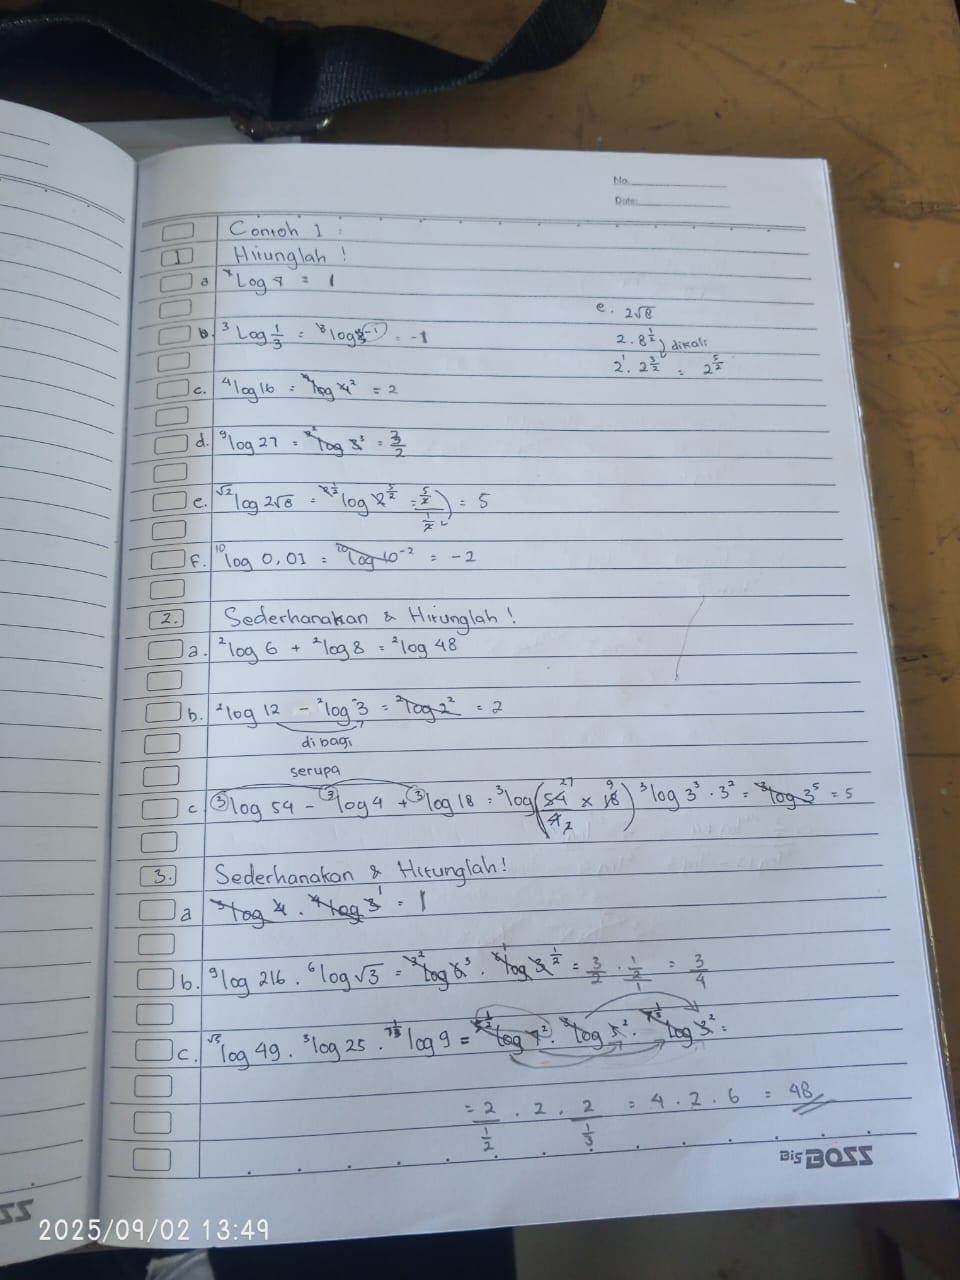 No.
Date:
Contoh 1 :
1 Hitunglah !
a ⁷Log 7 = 1
e. 2√8
b. ³Log 1/3 = ³log 3⁻¹ = -1
2 . 8^(1/2) dikali
2¹ . 2^(3/2) = 2^(5/2)
c. ⁴log 16 = ⁴log 4² = 2
d. ⁹log 27 = ^(3²)log 3³ = 3/2
e. ^(√2)log 2√8 = ^(2^(1/2))log 2^(5/2) = (5/2)/(1/2) = 5
f. ¹⁰log 0,01 = ¹⁰log 10⁻² = -2
2. Sederhanakan & Hitunglah !
a. ²log 6 + ²log 8 = ²log 48
b. ²log 12 - ²log 3 = ²log 2² = 2
di bagi
serupa
c ³log 54 - ³log 4 + ³log 18 = ³log (54 27 / 4 2 × 18 9) ³log 3³ . 3² = ³log 3⁵ = 5
3. Sederhanakan & Hitunglah!
a ³log 4 . ⁴log 3¹ = 1
b. ⁹log 216 . ⁶log √3 = ^(3²)log 6³ . ^(6¹)log 3^(1/2) = 3/2 . (1/2)/1 = 3/4
c. ^(√5)log 49 . ³log 25 . ^(7^(1/3))log 9 = ^(5^(1/2))log 7² . ³log 5² . ^(7^(1/3))log 3² =
= 2/(1/2) . 2 . 2/(1/3) = 4 . 2 . 6 = 48
Big BOSS
SS
2025/09/02 13:49